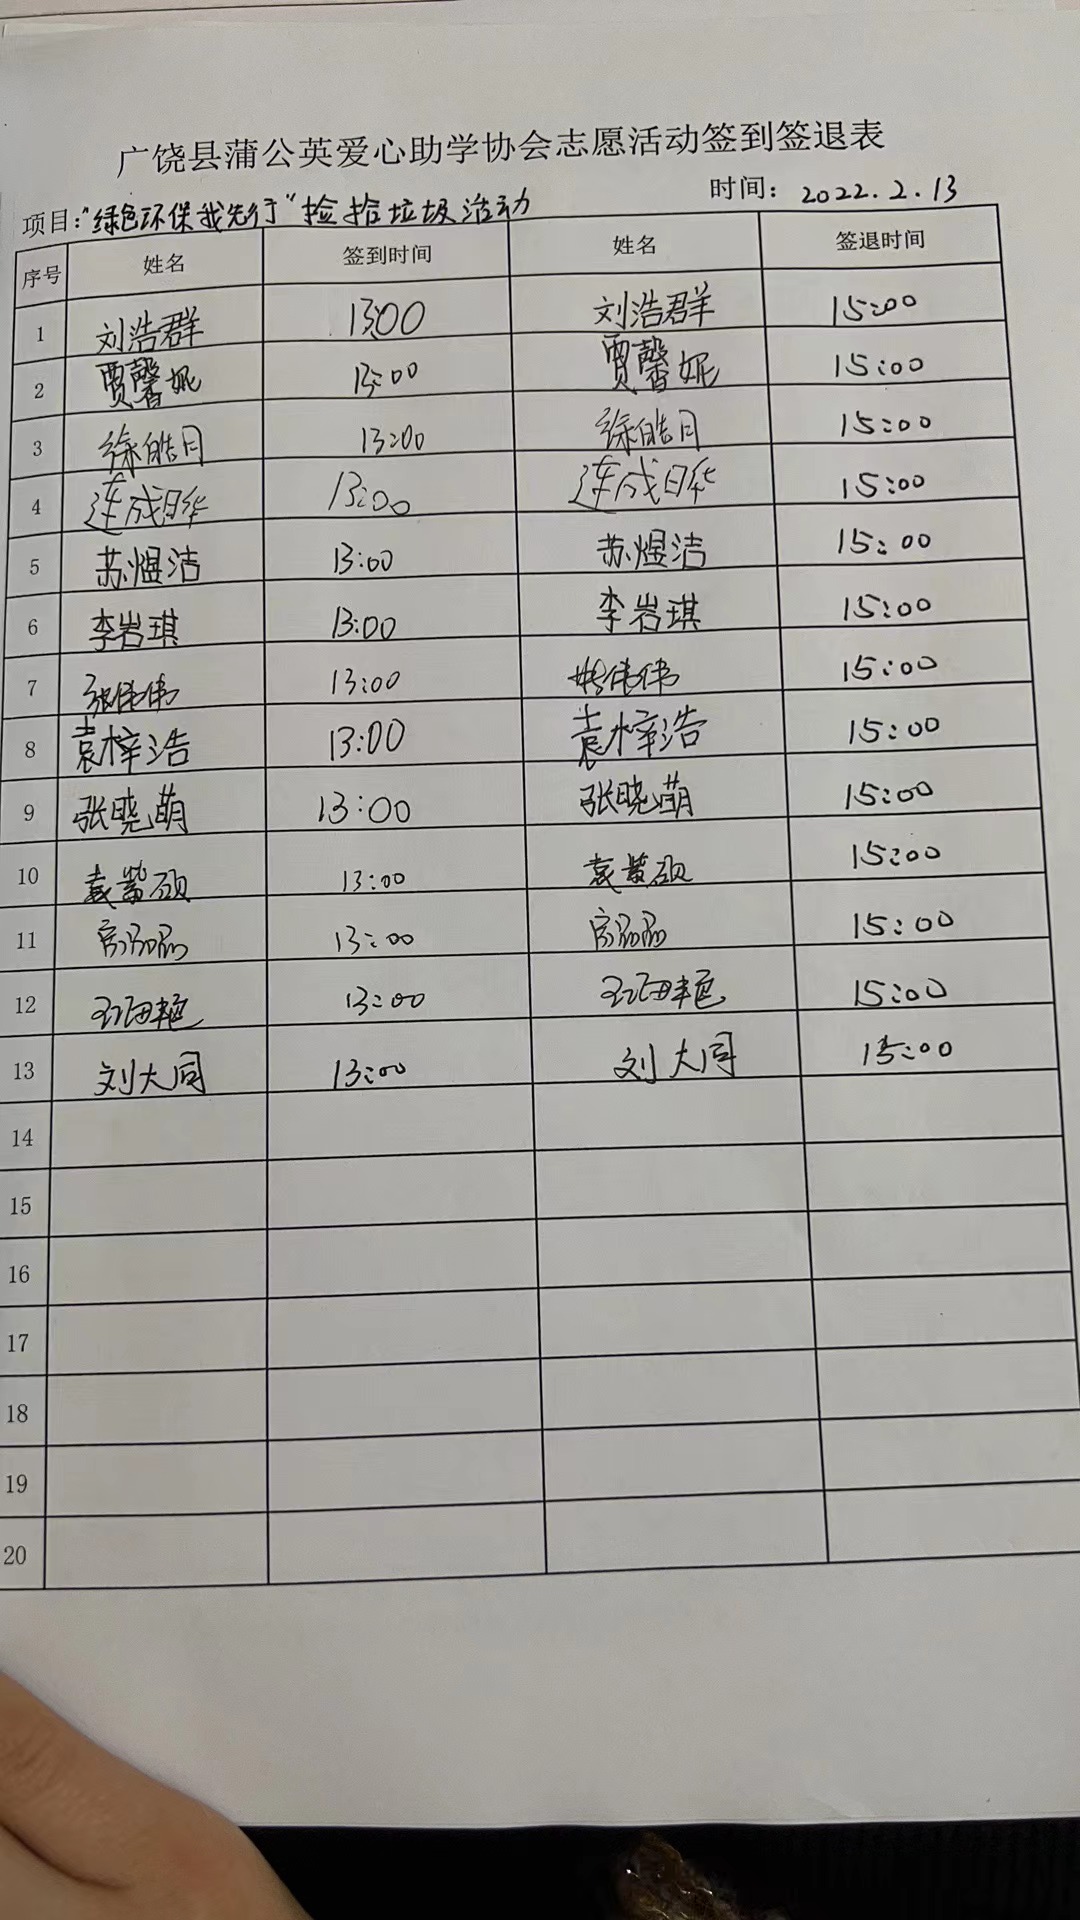 广饶县蒲公英爱心助学协会志愿活动签到签退表
项目："绿色环保我先行"捡拾垃圾活动 时间：2022.2.13
序号 姓名 签到时间 姓名 签退时间
1 刘浩群 13:00 刘浩群 15:00
2 贾馨妮 13:00 贾馨妮 15:00
3 徐皓月 13:00 徐皓月 15:00
4 连成晔 13:00 连成晔 15:00
5 苏煜洁 13:00 苏煜洁 15:00
6 李岩琪 13:00 李岩琪 15:00
7 张伟伟 13:00 伟伟 15:00
8 袁梓浩 13:00 袁梓浩 15:00
9 张晓萌 13:00 张晓萌 15:00
10 袁紫硕 13:00 袁紫硕 15:00
11 13:00 15:00
12 13:00 15:00
13 刘大同 13:00 刘大同 15:00
14
15
16
17
18
19
20